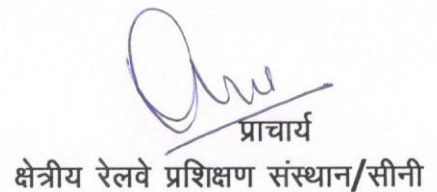 प्राचार्य
क्षेत्रीय रेलवे प्रशिक्षण संस्थान/सीनी